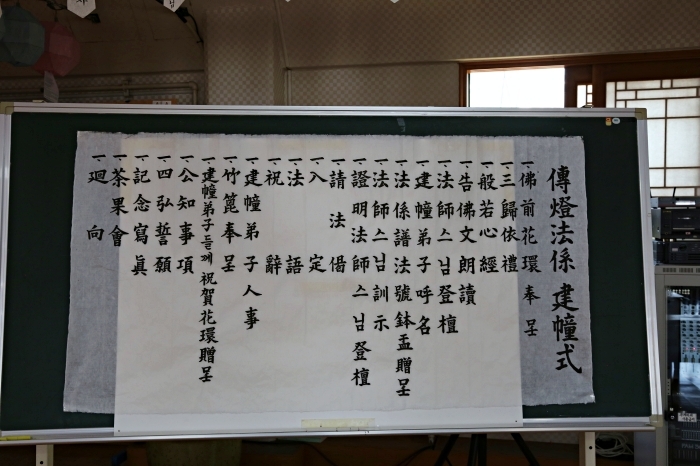 傳燈法係 建幢式
一. 佛前花環奉呈
一. 三歸依禮
一. 般若心經
一. 告佛文朗讀
一. 法師스님登壇
一. 建幢弟子呼名
一. 法係譜法號鉢盂贈呈
一. 法師스님訓示
一. 證明法師스님登壇
一. 請法偈
一. 入定
一. 法語
一. 祝辭
一. 建幢弟子人事
一. 竹篦奉呈
一. 建幢弟子들께 祝賀花環贈呈
一. 公知事項
一. 四弘誓願
一. 記念寫眞
一. 茶果會
一. 廻向